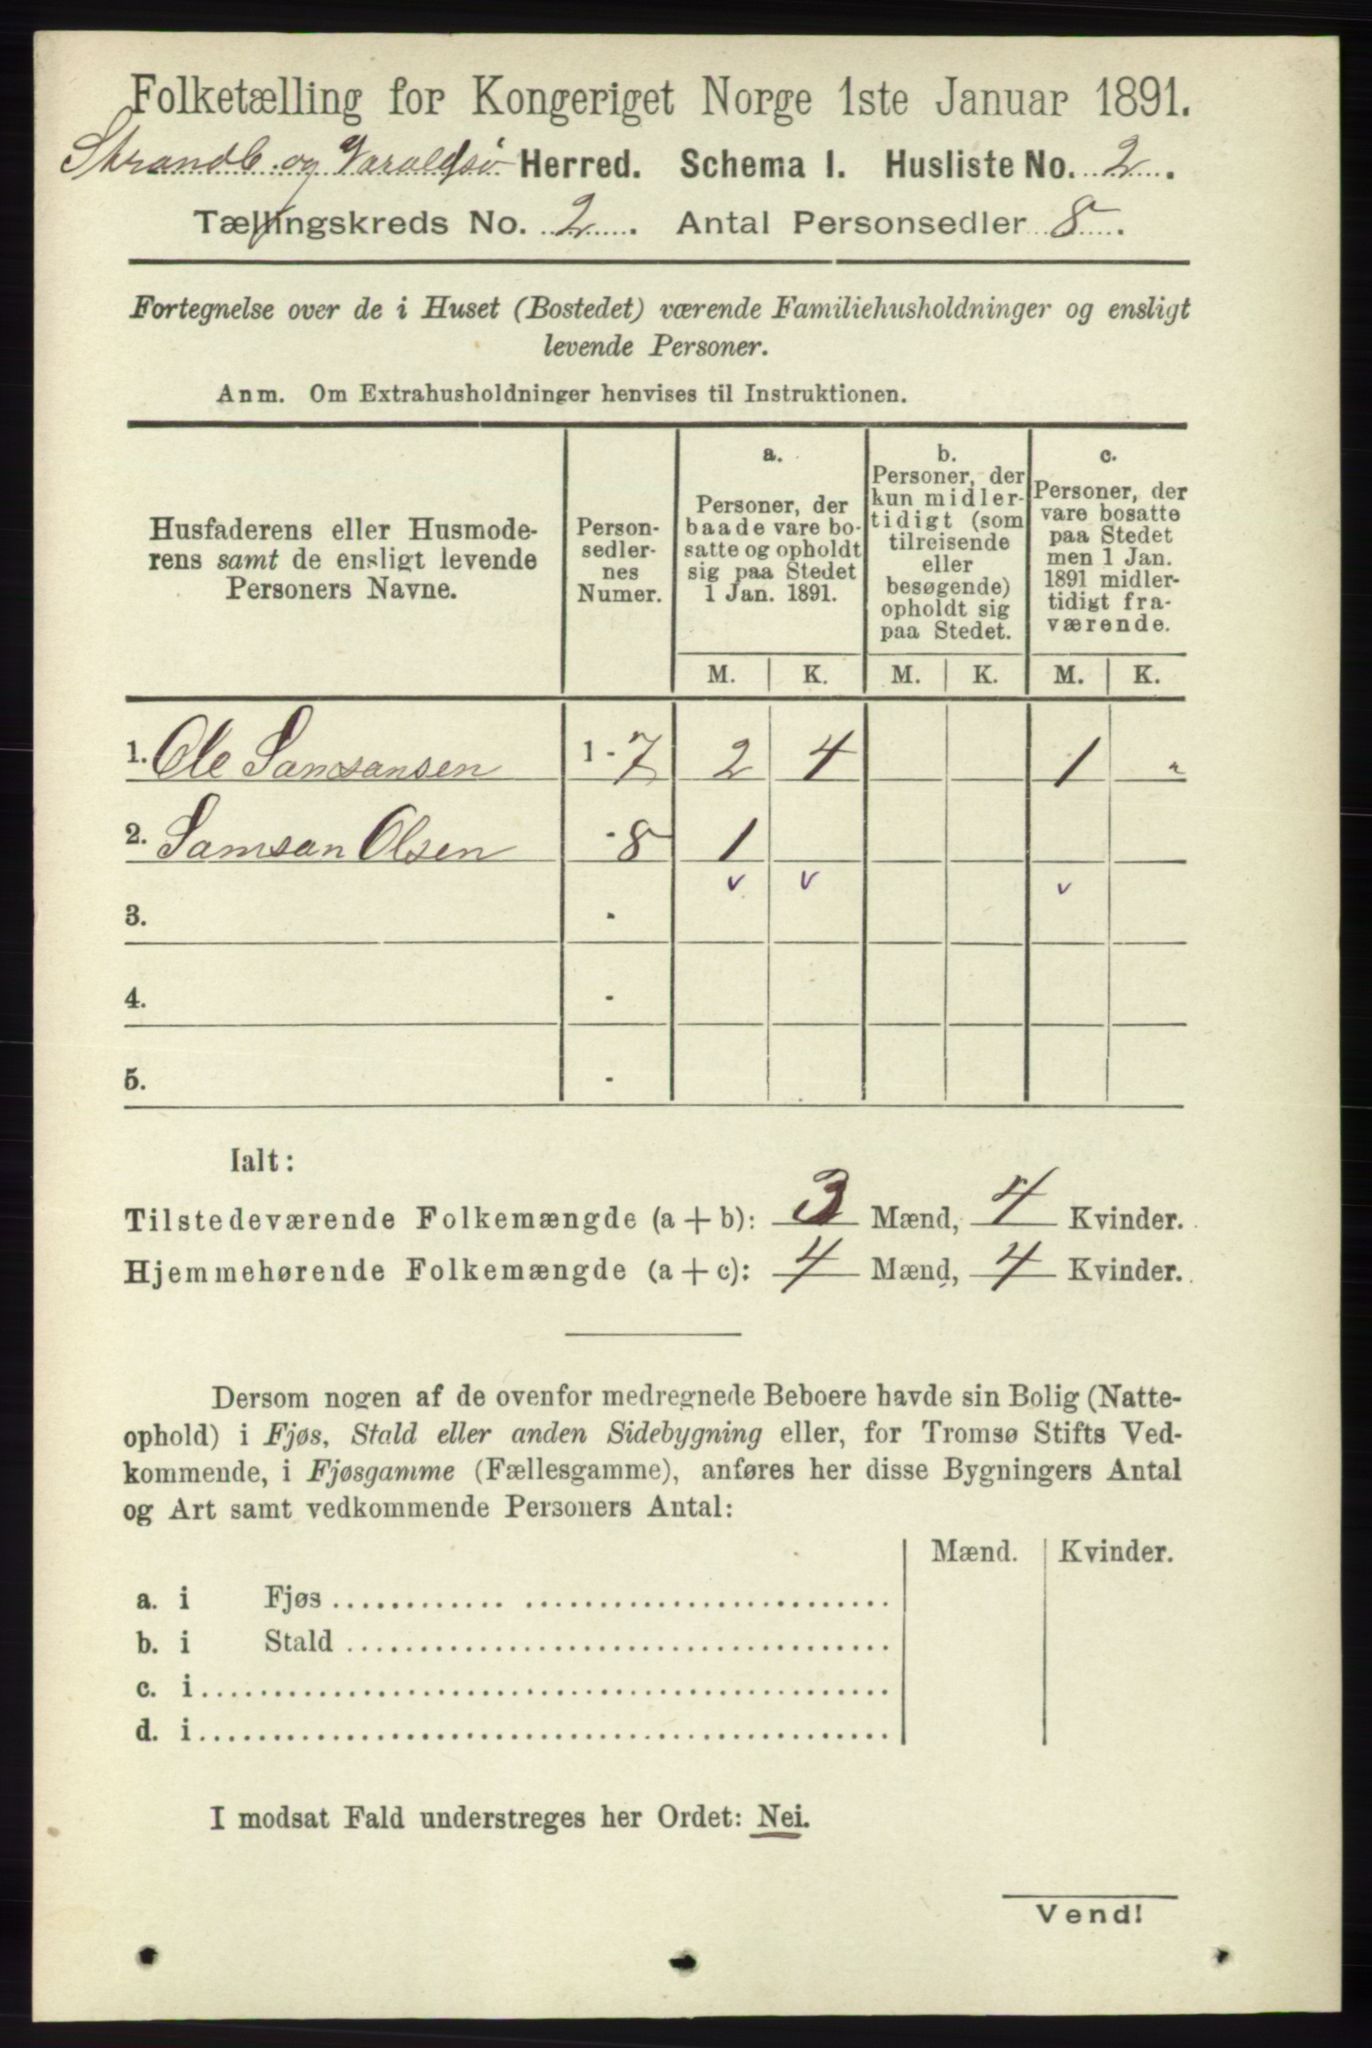 Folketælling for Kongeriget Norge 1ste Januar 1891.
Strandb. og Varaldsø Herred. Schema I. Husliste No. 2.
Tællingskreds No. 2. Antal Personsedler 8.
Fortegnelse over de i Huset (Bostedet) værende Familiehusholdninger og ensligt
levende Personer.
Anm. Om Extrahusholdninger henvises til Instruktionen.
Husfaderens eller Husmode-
rens samt de ensligt levende
Personers Navne.
Person-
sedler-
nes
Numer.
a.
Personer, der
baade vare bo-
satte og opholdt
sig paa Stedet
1 Jan. 1891.
b.
Personer, der
kun midler-
tidigt (som
tilreisende
eller
besøgende)
opholdt sig
paa Stedet.
c.
Personer, der
vare bosatte
paa Stedet
men 1 Jan.
1891 midler-
tidigt fra-
værende.
M. K. M. K. M. K.
1. Ole Samsansen 1 - 7 2 4 1 "
2. Samsan Olsen - 8 1
v v v
3. -
4. -
5. -
Ialt:
Tilstedeværende Folkemængde (a + b): 3 Mænd, 4 Kvinder.
Hjemmehørende Folkemængde (a + c): 4 Mænd, 4 Kvinder.
Dersom nogen af de ovenfor medregnede Beboere havde sin Bolig (Natte-
ophold) i Fjøs, Stald eller anden Sidebygning eller, for Tromsø Stifts Ved-
kommende, i Fjøsgamme (Fællesgamme), anføres her disse Bygningers Antal
og Art samt vedkommende Personers Antal:
Mænd. Kvinder.
a. i Fjøs
b. i Stald
c. i
d. i
I modsat Fald understreges her Ordet: Nei.
Vend!